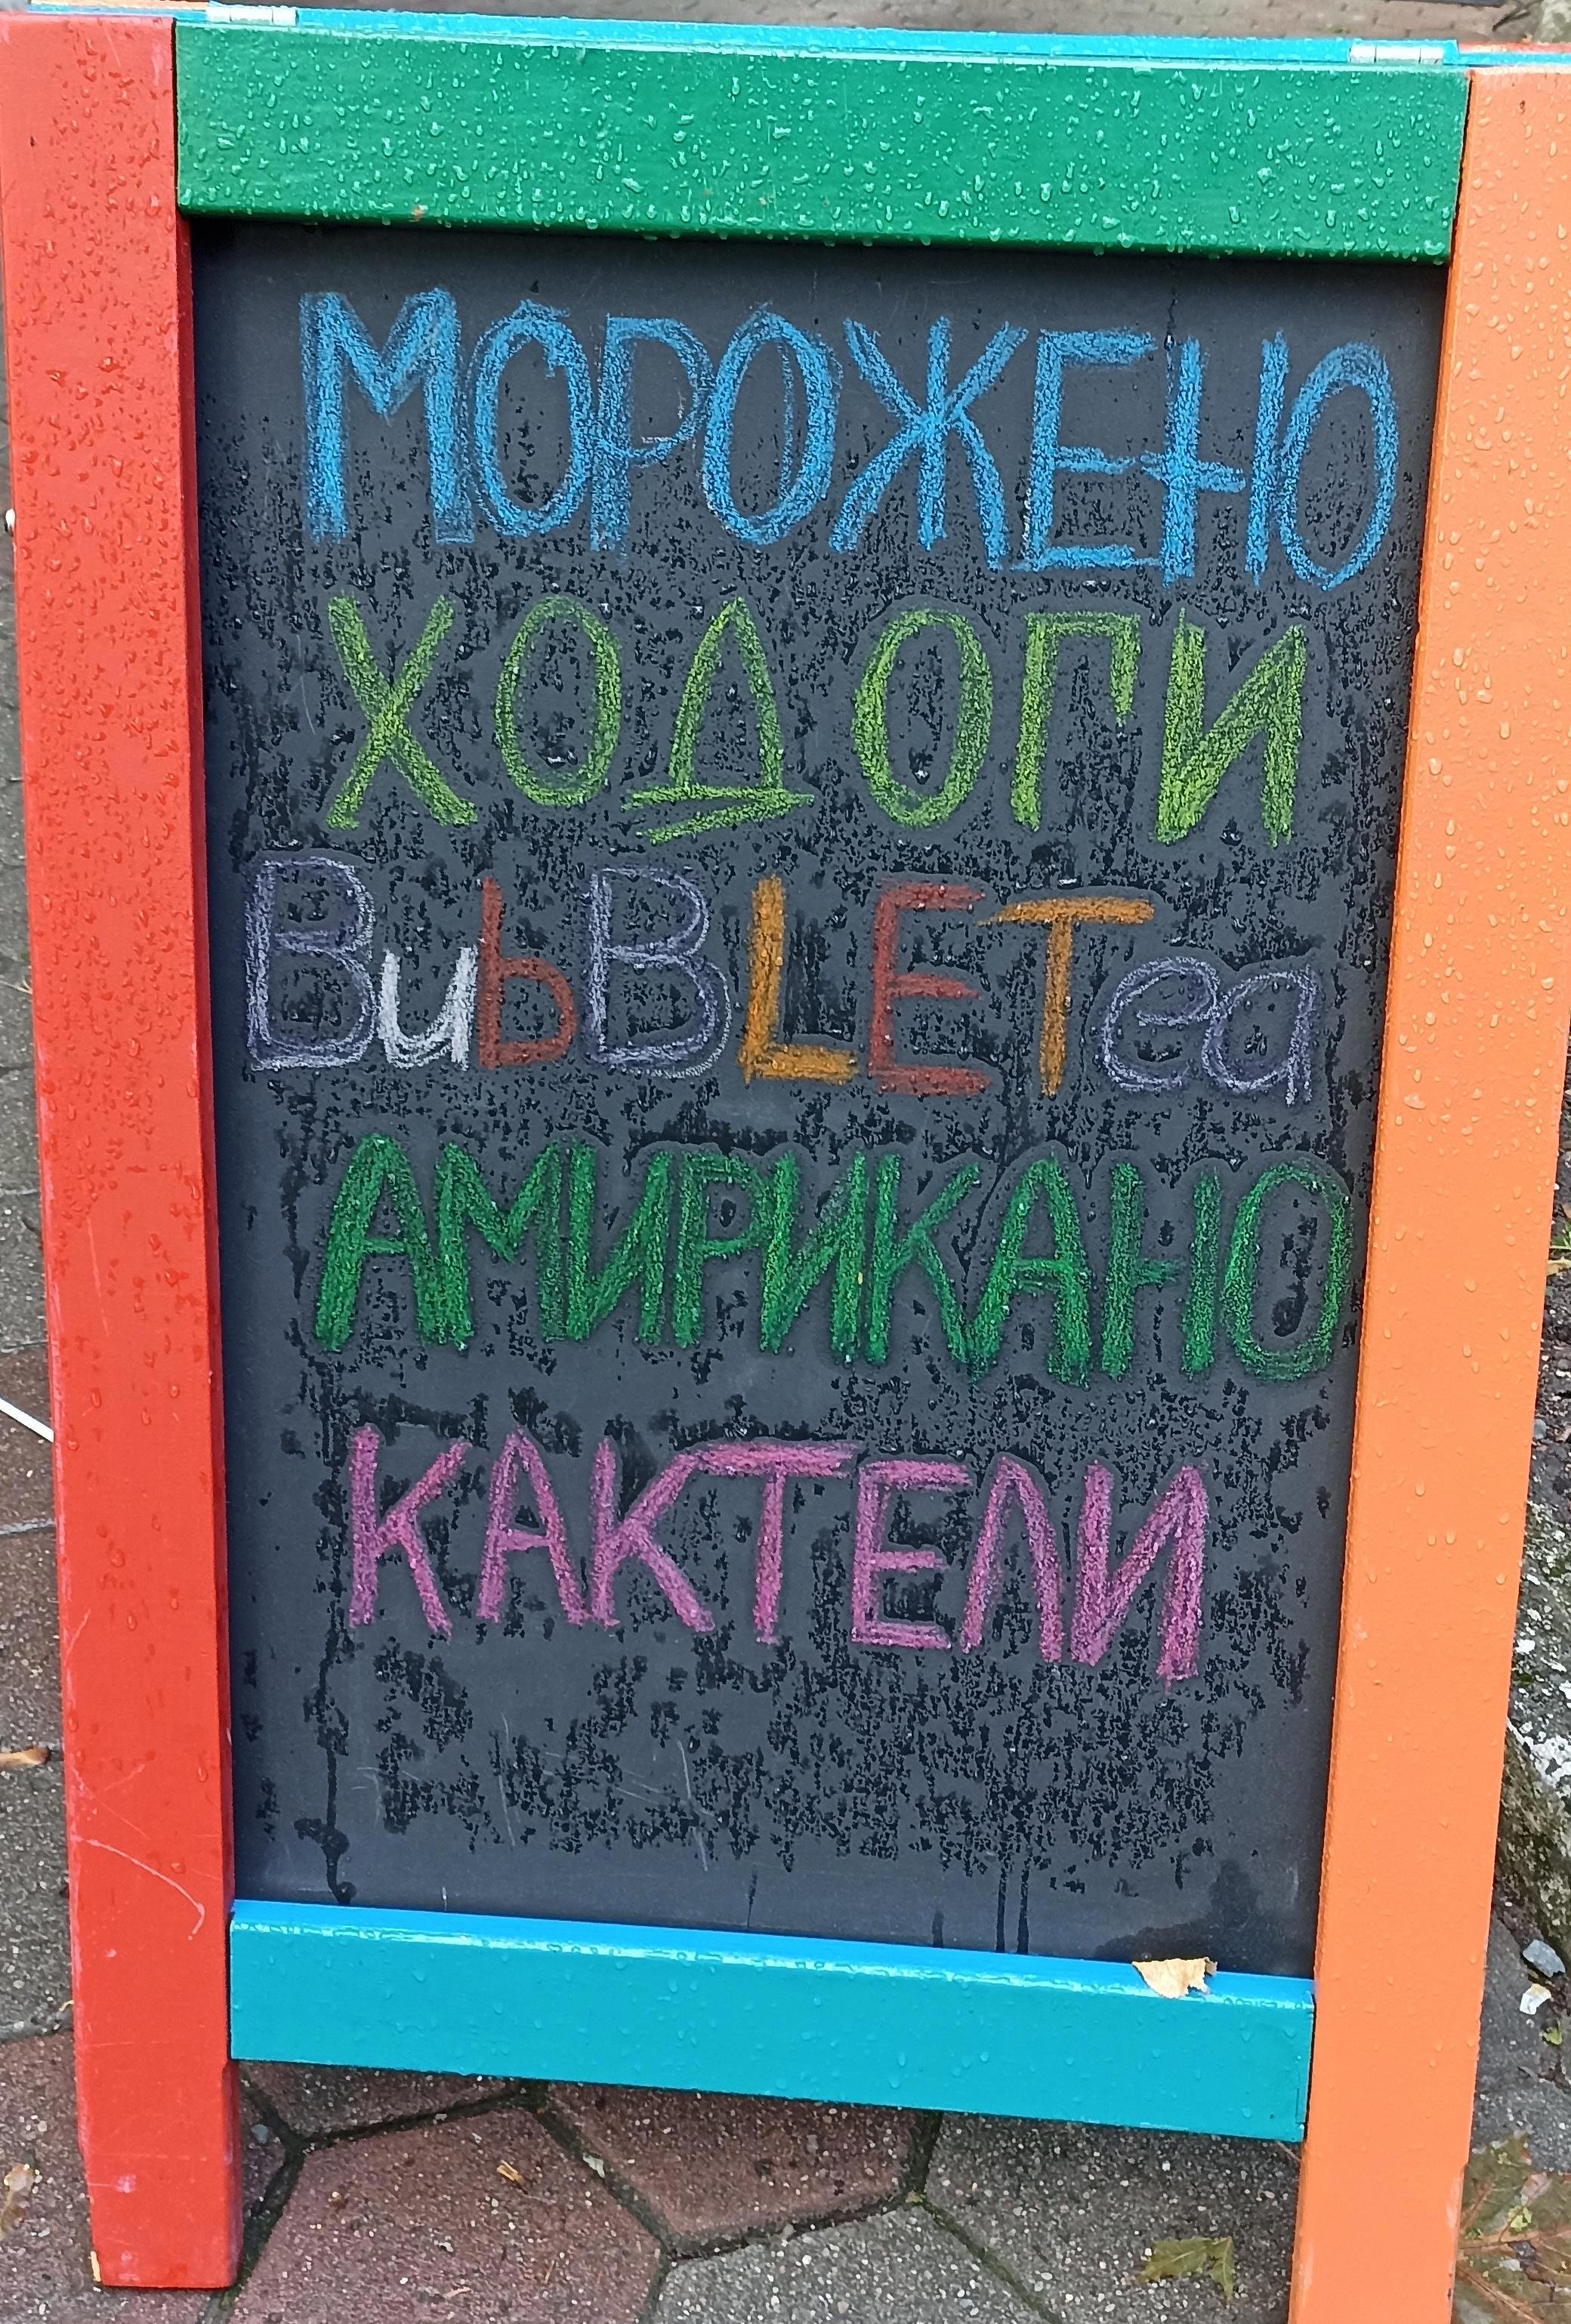 МОРОЖЕНО
ХОД ОГИ
BubBLETea
АМИРИКАНО
КАКТЕЛИ